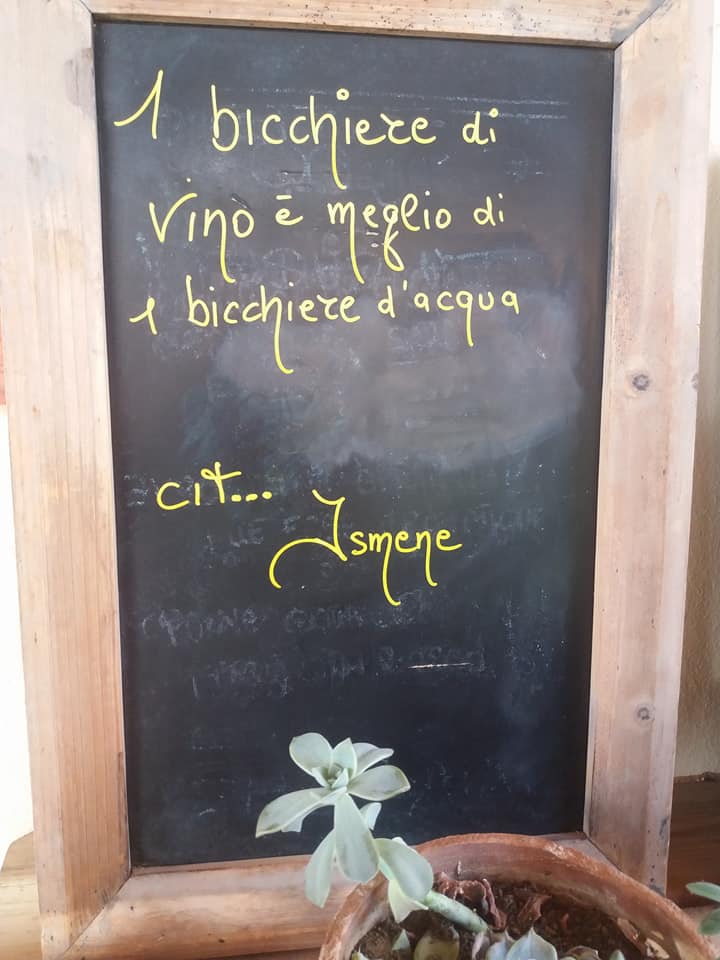 1 bicchiere di
vino è meglio di
1 bicchiere d'acqua
cit...
Ismene